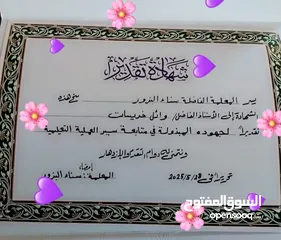 شهادة تقدير
يسر المعلمة الفاضلة سناء البزور منح هذه
الشهادة إلى الأستاذ الفاضل وائل خريسات
تقديراً لجهوده المبذولة في متابعة سير العملية التعليمية
ونتمنى له دوام التقدم والازدهار
تحريراً في 2025/5/29
المعلمة: سناء البزور
السوق المفتوح
opensooq.com